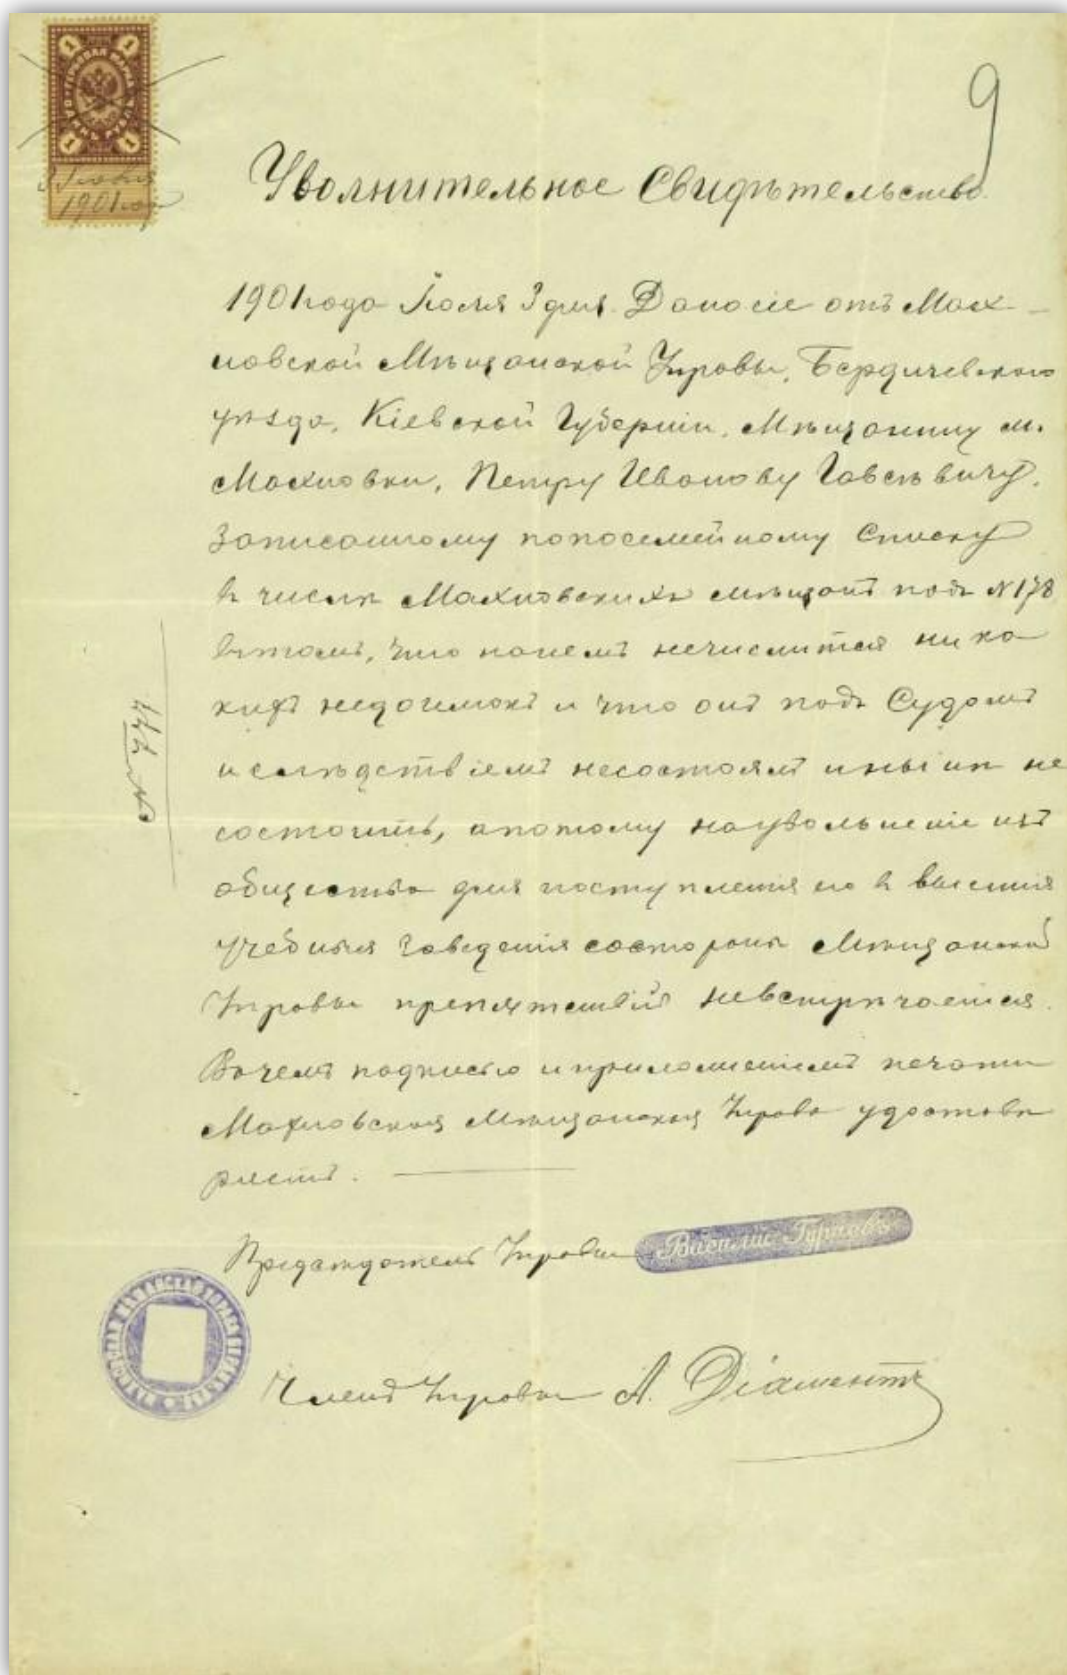 9
1
1
ГЕРБОВАЯ МАРКА
ОДИНЪ РУБЛЬ
1
1
3 Іюля
1901 года
Уволнительное Свидѣтельство.
1901 года Іюля 3 дня. Дано сіе отъ Мах-
новской Мѣщанской Управы, Бердичевского
уѣзда, Кіевской Губерніи, Мѣщанину м.
Махновки, Петру Иванову Говсѣвичу,
записанному попосемейному Списку
в числѣ Махновскихъ мѣщанъ подъ № 178
втомъ, что понемъ нечислится ника
кихъ недоимокъ и что онъ подъ Судомъ
и слѣдствіемъ несостоялъ и нынѣ не
состоитъ, а потому на увольненіе изъ
общества для поступленія его в высшія
учебныя Заведенія состороны Мѣщанской
Управы препятствій невстрѣчается.
Вочемъ подписью и приложеніемъ печати
Махновская Мѣщанская Управа удостовѣ
ряетъ.
Предсѣдатель Управы Василій
Членъ Управы А. Діаментъ